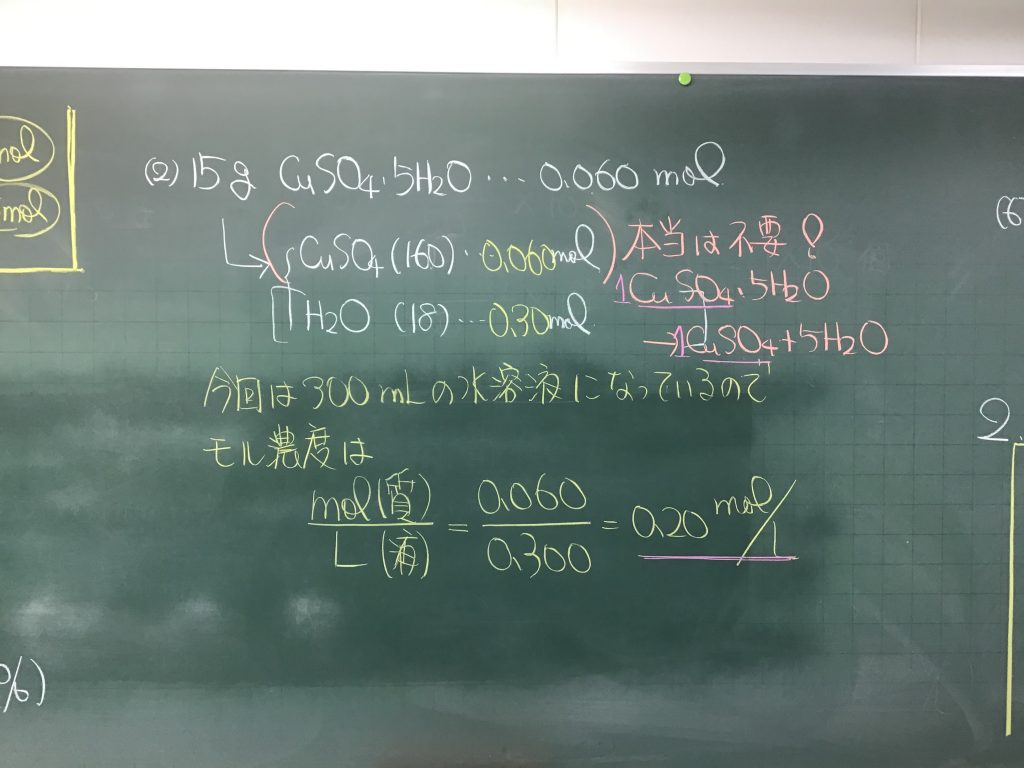 mol
mol
(2) 15g CuSO4・5H2O … 0.060 mol
CuSO4(160)・0.060mol
H2O (18)…0.30mol
本当は不要!
1CuSO4・5H2O
→1CuSO4+5H2O
今回は300mLの水溶液になっているので
モル濃度は
mol(質)/L(液) = 0.060/0.300 = 0.20 mol/L
%)
(6)
2.